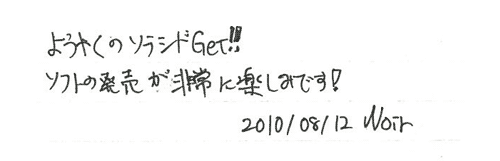 ようやくのソラシドGet!!
ソフトの発売が非常に楽しみです!
2010/08/12 Noir